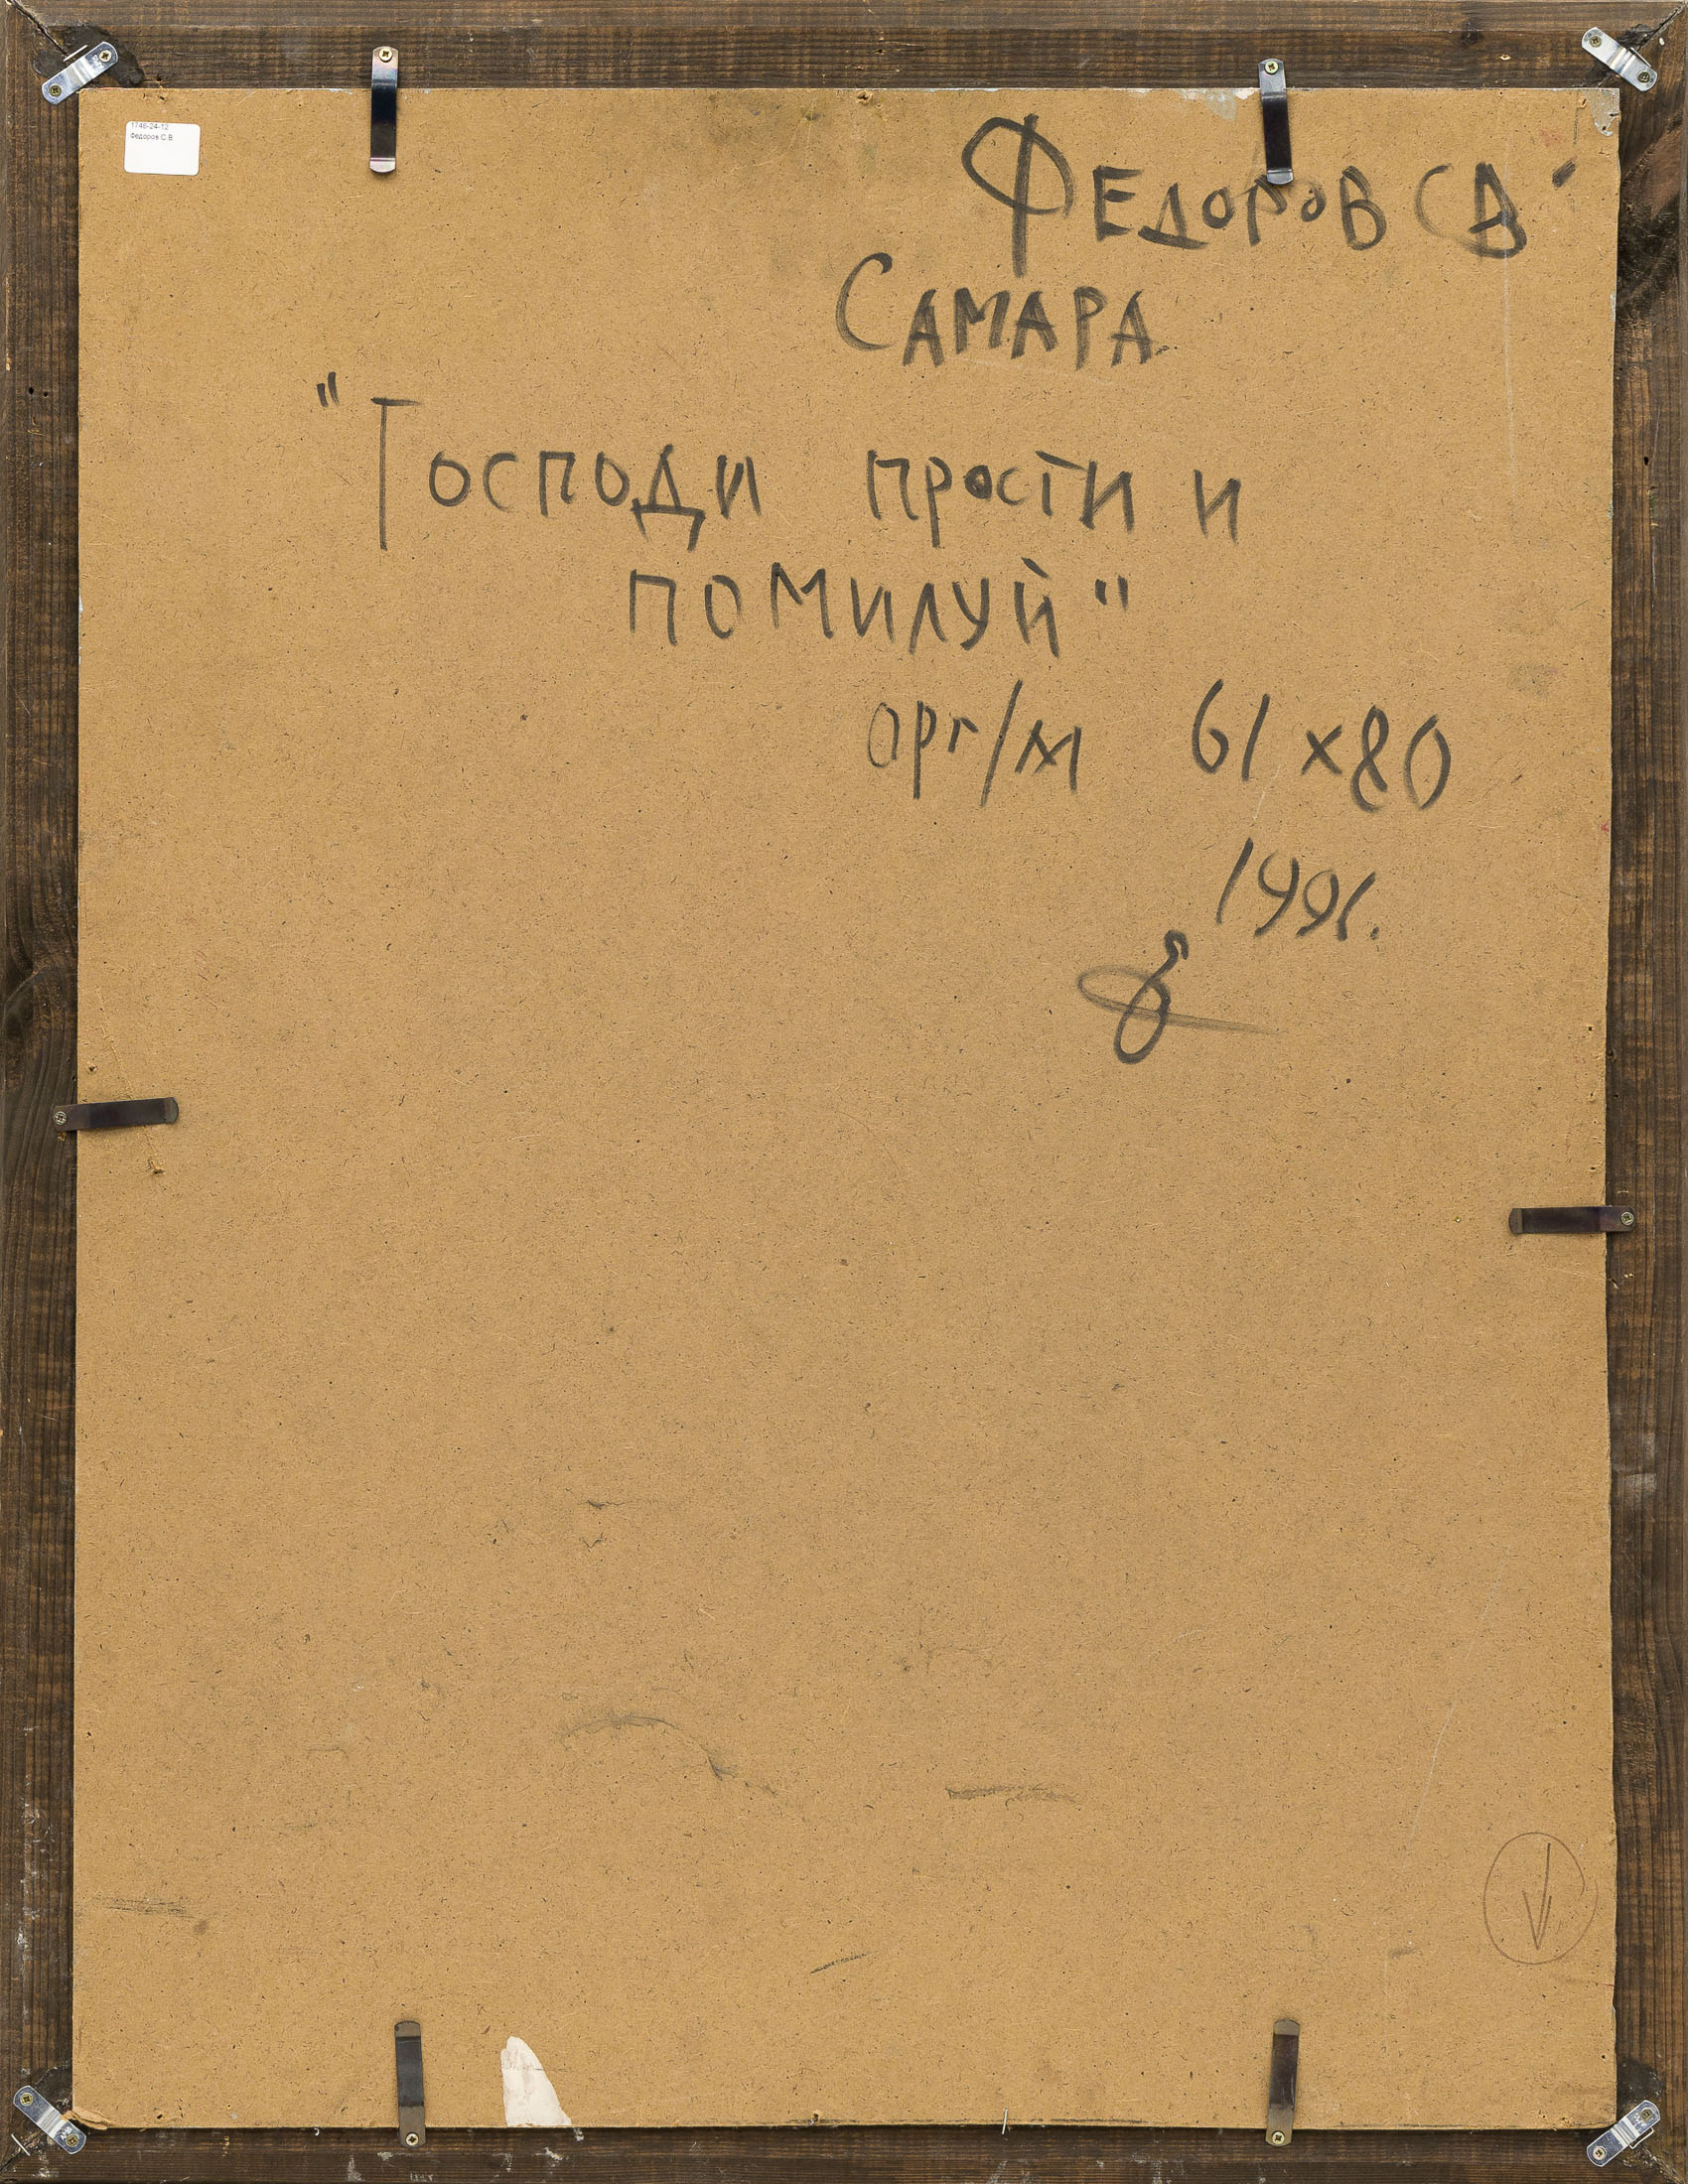 1746-24-12
Федоров С.В.
ФЕДОРОВ СВ
САМАРА
"Господи прости и
помилуй"
орг/м 61x80
1991.